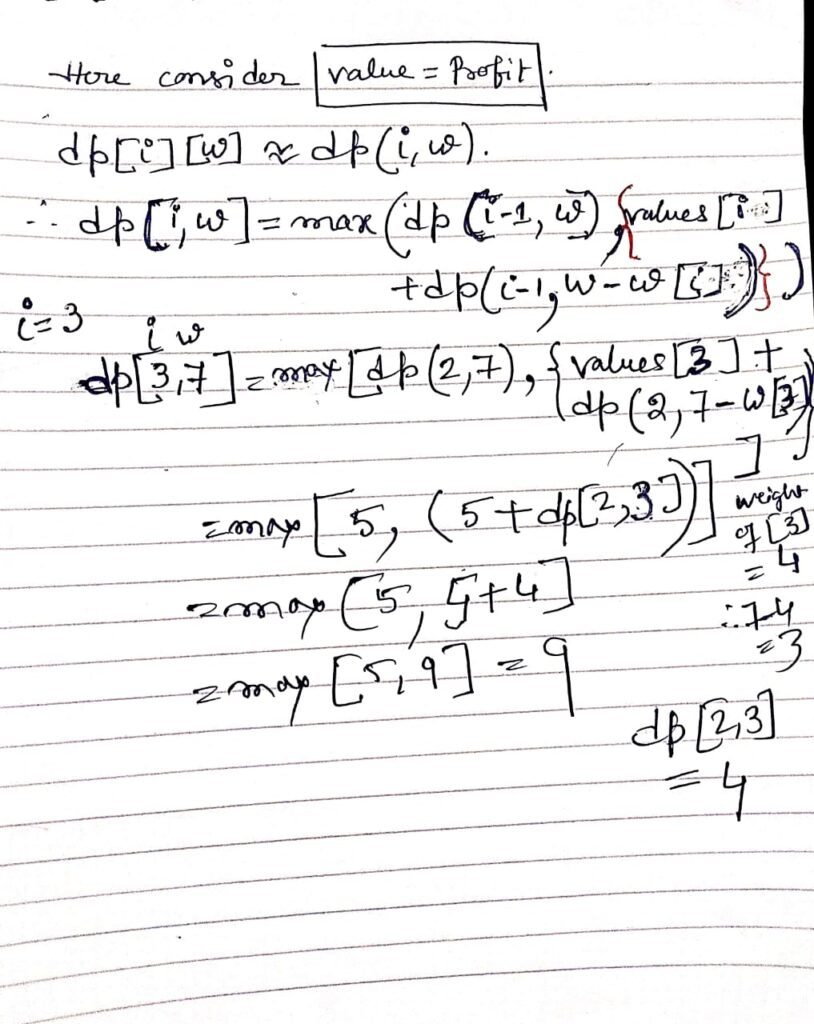 Here consider value = Profit.
dp[i][w] ≈ dp(i,w).
∴ dp[i,w] = max(dp(i-1, w), {values[i]
+dp(i-1, w-w[i])})
i=3
i w
dp[3,7] = max[dp(2,7), {values[3] +
dp(2, 7-w[3])}
]
= max[5, (5+dp[2,3])]
weight
of [3]
= 4
= max[5, 5+4]
∴ 7-4
= 3
= max[5,9] = 9
dp[2,3]
= 4